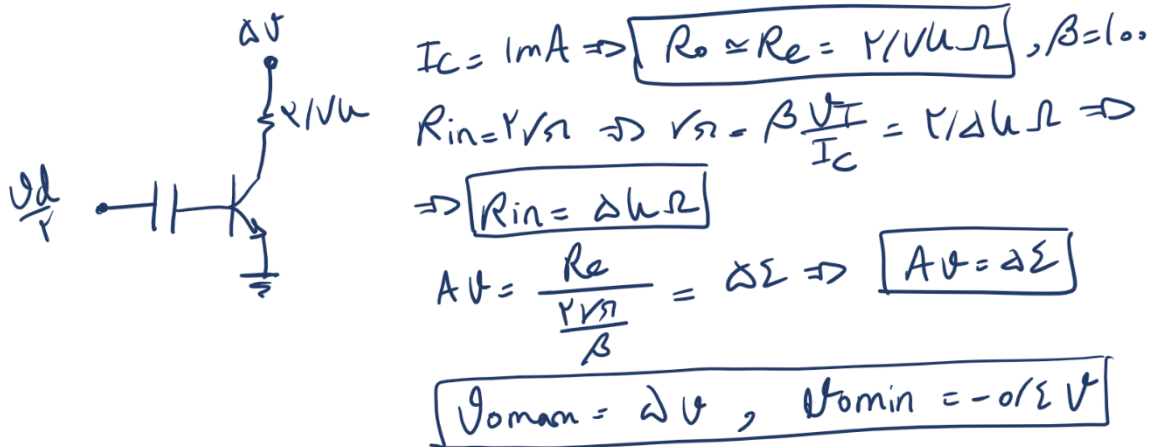 ۵v
۲/۷k
vd/۲
Ic = 1mA ⇒ Ro ≃ Rc = ۲/۷kΩ , β=100
Rin=۲rπ ⇒ rπ = β VT/Ic = ۲/۵kΩ ⇒
⇒ Rin = ۵kΩ
Av = Rc/(۲rπ/β) = ۵۴ ⇒ Av = ۵۴
Vomax = ۵v , Vomin = -0/۴ v